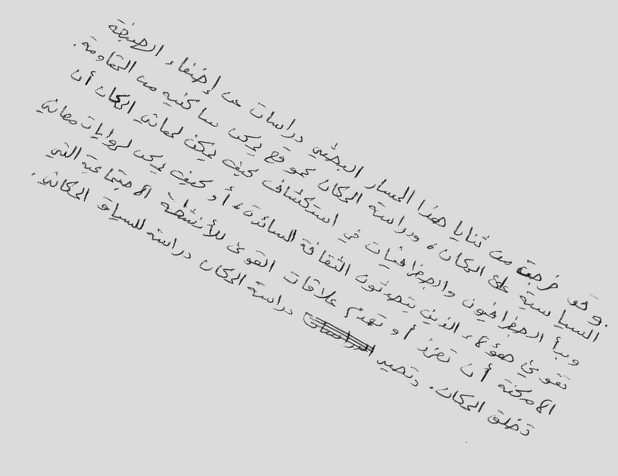 .وقد خرجت من ثنايا هذا المسار البحثي دراسات عن إضفاء الصبغة
السياسية على المكان، ودراسة المكان كموقع يمكن ساكنيه من المقاومة.
وبدأ الجغرافيون والجغرافيات في استكشاف كيف يمكن لمعاني المكان أن
تقوي هؤلاء الذين يتحدثون الثقافة السائدة، أو كيف يمكن لروايات معاني
الأمكنة أن تعزز أو تهدم علاقات القوى للأنشطة الاجتماعية التي
تخلق المكان. وتصير دراسة المكان دراسة للسياق المكاني.